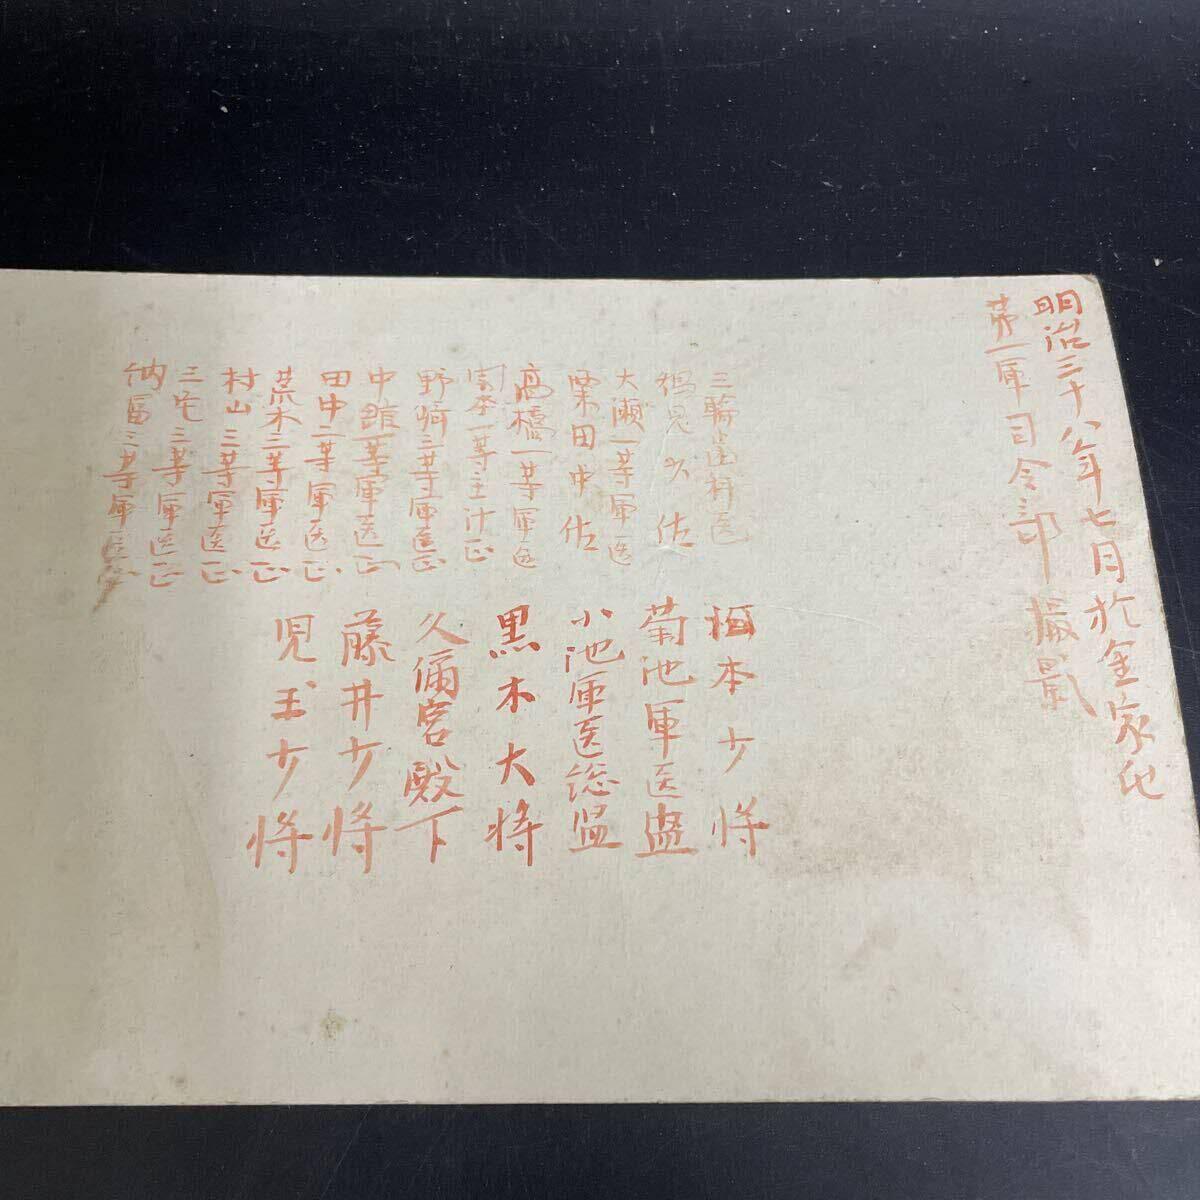 明治三十八年七月於金家屯
第一軍司令部撮影
三輪歯科医
鶴見少佐
大瀬一等軍医
栗田中佐
高橋一等軍医
一等主計正
野崎三等軍医正
中舘一等軍医正
田中二等軍医正
荒木三等軍医正
村山三等軍医正
三宅三等軍医正
納富三等軍医正
梅本少将
菊池軍医監
小池軍医総監
黒木大将
久邇宮殿下
藤井少将
児玉少将